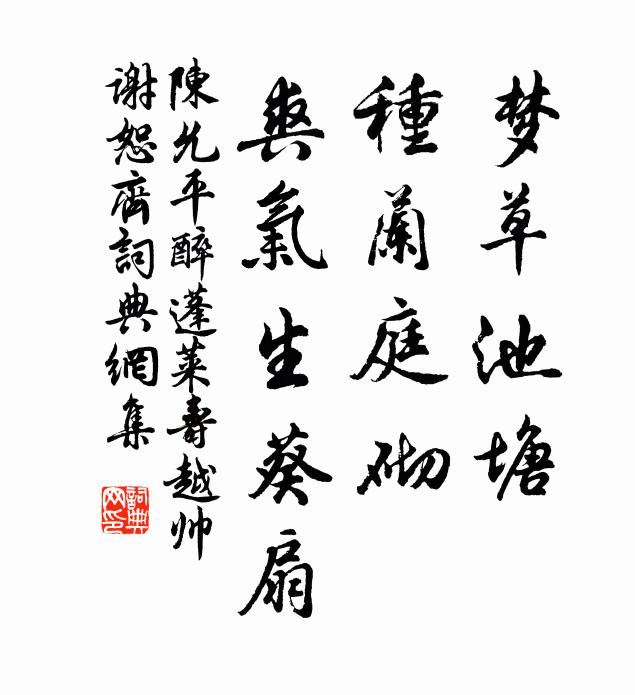 梦草池塘
種蘭庭砌
爽氣生葵扇
陳允平醉蓬萊壽越帅
謝恕齋詞典網集
詞典网印